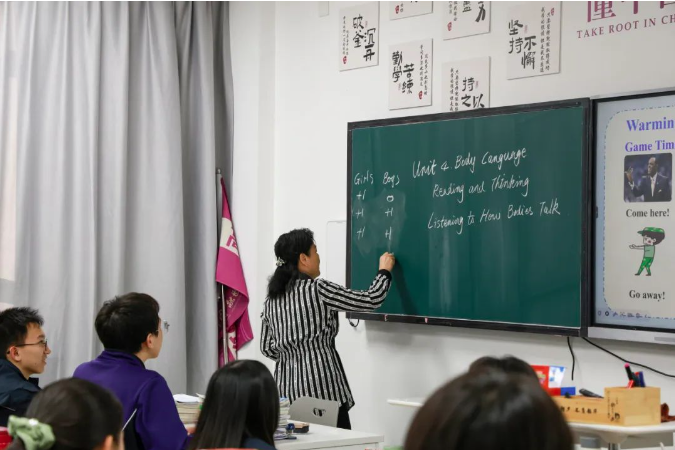 破釜沉舟
勤学苦练
持之以
坚持不懈
TAKE ROOT IN CH
Unit 4 Body Language
Girls Boys
+1 0
Reading and Thinking
+1 +1
Listening to How Bodies Talk
+1 +1
Warmin
Game Tim
Come here!
Go away!